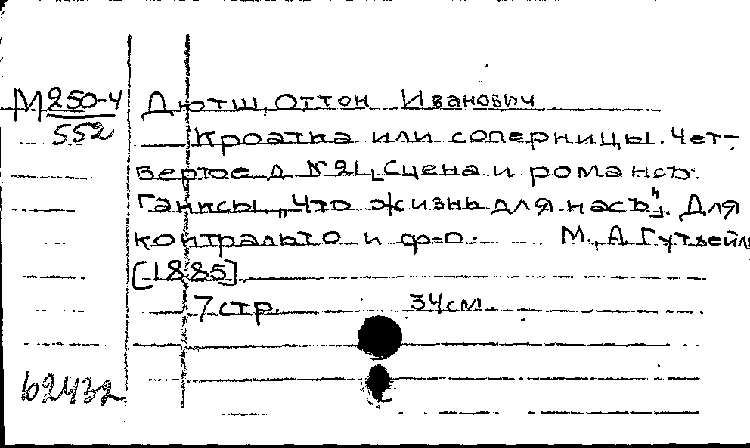 М 250-4 Дютш, Оттон Иванович
552
Кроатка или соперницы. Чет-
вертое д. № 21, Сцена и романсъ.
Ганисы „Что жизнь для насъ". Для
контральто и ф-п. М., А. Гутхейль
[1885].
7 стр. 34 см.
62432